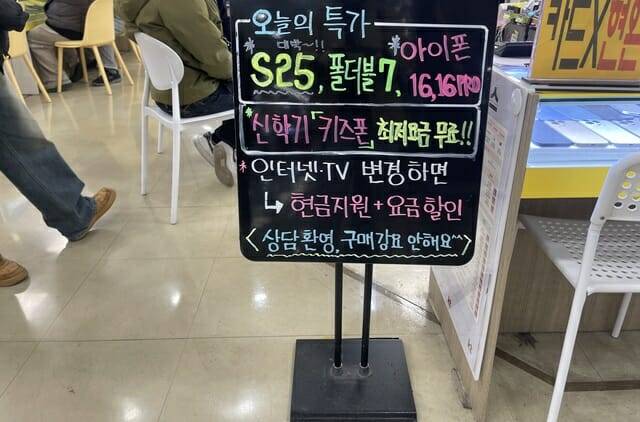 오늘의 특가
대박~!!
*아이폰
S25, 폴더블7, 16, 16pro
*신학기 「키즈폰」 최저요금 무료!!
*인터넷·TV 변경하면
↳ 현금지원 + 요금할인
<상담환영, 구매강요 안해요~^>
카드X현